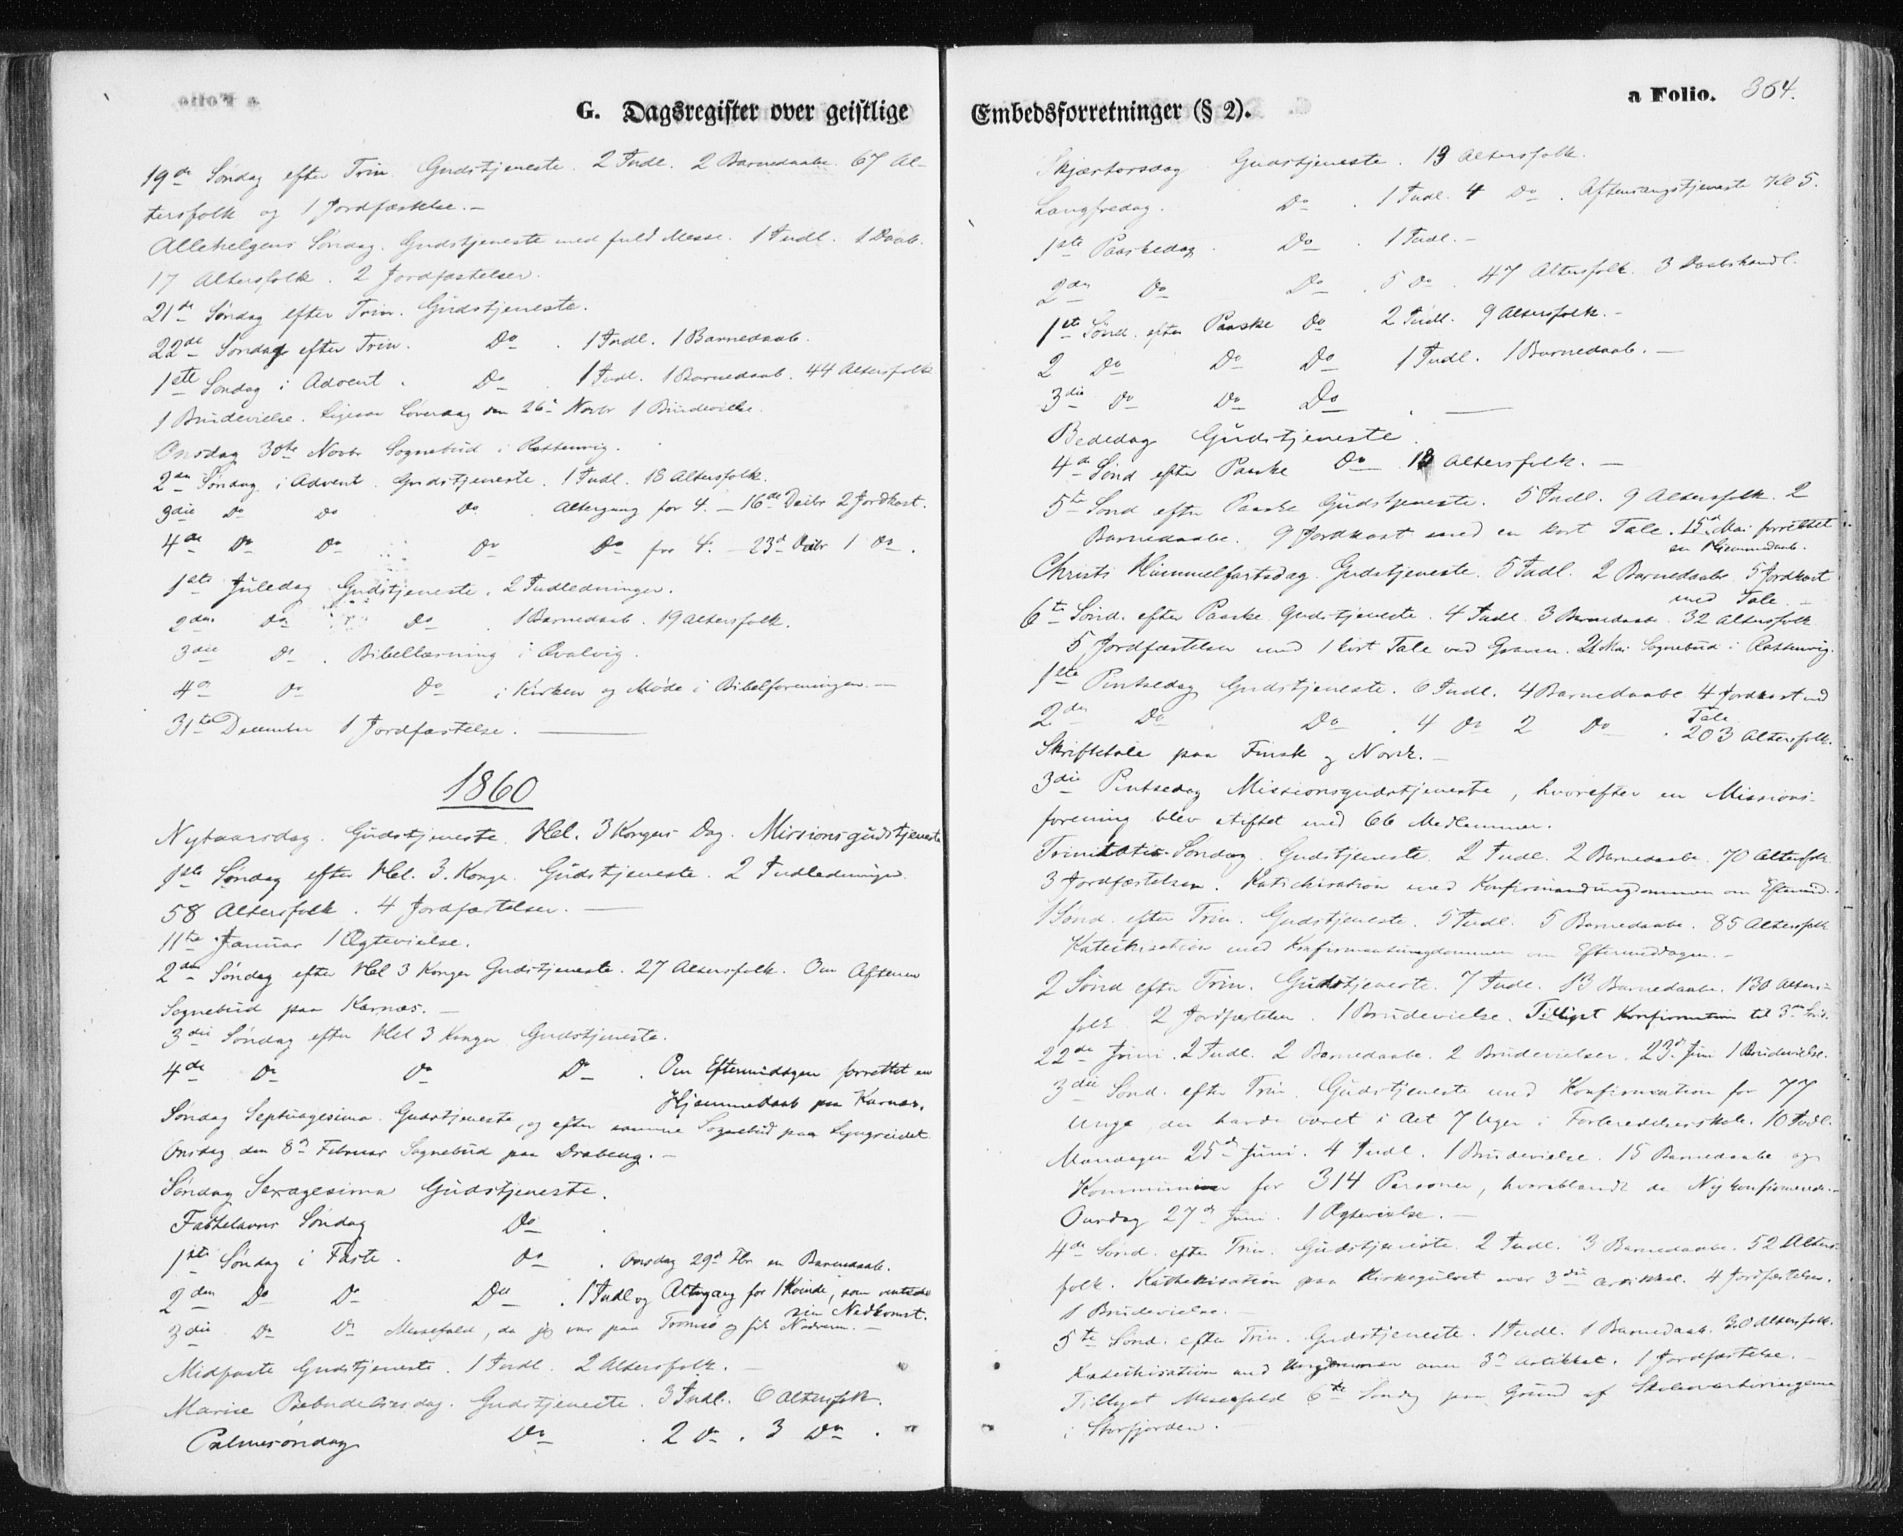 G. Dagsregister over geistlige
19de Søndag efter Trin. Gudstjeneste. 2 Indl. 2 Barnedaabe. 67 Al-
tersfolk og 1 Jordfæstelse. —
Allehelgens Søndag. Gudstjeneste med fuld Messe. 1 Indl. 1 Daab.
17 Altersfolk. 2 Jordfæstelser.
21de Søndag efter Trin. Gudstjeneste.
22de Søndag efter Trin. Do . 1 Indl. 1 Barnedaab.
1ste Søndag i Advent. Do . 1 Indl. 1 Barnedaab. 44 Altersfolk
1 Brudevielse. Ligesaa Løverdag den 26de Novbr 1 Brudevielse.
Onsdag 30te Novbr Sognebud i Rottenvig.
2den Søndag i Advent. Gudstjeneste. 1 Indl. 18 Altersfolk.
3die Do Do Do Altergang for 4. — 16de Decbr 2 Jordkast.
4de Do Do Do Do for 4. — 23de Decbr 1 Do.
1ste Juledag Gudstjeneste. 2 Indledninger.
2den Do Do . 1 Barnedaab. 19 Altersfolk.
3die Do . Bibellæsning i Qvalvig.
4de Do Do i Kirken og Møde i Bibelforeningen. —
31te December 1 Jordfæstelse. —
1860
Nytaarsdag. Gudstjeneste. Hel. 3 Kongers Dag. Missionsgudstjeneste
1ste Søndag efter Hel. 3. Konger. Gudstjeneste. 2 Indledninger.
58 Altersfolk. 4 Jordfæstelser. —
11te Januar 1 Ægtevielse.
2den Søndag efter Hel 3 Konger Gudstjeneste. 27 Altersfolk. Om Aftenen
Sognebud paa Karnæs. —
3die Søndag efter Hel 3 Konger Gudstjeneste.
4de Do Do Do . Om Eftermidagen forrettet en
Hjemmedaab paa Karnæs.
Søndag Septuagesima. Gudstjeneste, og efter samme Sognebud paa Lyngseidet
Onsdag den 8de Februar Sognebud paa Drabeng. —
Søndag Sexagesima Gudstjeneste.
Fastelavns Søndag Do .
1ste Søndag i Faste. Do . Onsdag 29de Fbr. en Barnedaab.
2den Do Do Do . 1 Indl og Altergang for 1 Kvinde, som ventede
sin Nedkomst.
3die Do Do Messefald, da jeg var paa Tromsø og fik Nadveren. —
Midfaste Gudstjeneste. 1 Indl. 2 Altersfolk. —
Mariæ Bebudelsesdag. Gudstjeneste. 3 Indl. 6 Altersfolk.
Palmesøndag Do . 2 Do. 3 Do .
Embedsforretninger (§ 2).
a Folio. 364.
Skjærtorsdag Gudstjeneste. 19 Altersfolk.
Langfredag. Do . 1 Indl. 4 Do . Aftensangstjeneste Kl 5.
1ste Paaskedag. Do . 1 Indl. —
2den Do Do . 5 Do . 47 Altersfolk. 3 Daabshandl.
1ste Sønd. efter Paaske Do 2 Indl. 9 Altersfolk. —
2 Do Do Do 1 Indl. 1 Barnedaab. —
3die Do Do Do . —
Bededag Gudstjeneste.
4de Sønd efter Paaske Do 18 Altersfolk. —
5te Sønd efter Paaske Gudstjeneste. 5 Indl. 9 Altersfolk. 2
Barnedaabe. 9 Jordkast med en kort Tale. 15de Mai forrettet
en Hjemmedaab.
Christi Himmelfartsdag. Gudstjeneste. 5 Indl. 2 Barnedaabe. 5 Jordkast
med Tale. —
6te Sønd. efter Paaske Gudstjeneste. 4 Indl. 3 Barnedaabe. 32 Altersfolk
5 Jordfæstelser med 1 kort Tale ved Graven. 21 Mai Sognebud i Rottenvig.
1ste Pintsedag Gudstjeneste. 6 Indl. 4 Barnedaabe. 4 Jordkast med
Tale
2den Do . Do . 4 Do 2 Do . 203 Altersfolk.
Skriftetale paa Finsk og Norsk. —
3die Pintsedag Missionsgudstjeneste, hvorefter en Missions-
forening blev stiftet med 66 Medlemmer.
Trinitatis Søndag. Gudstjeneste. 2 Indl. 2 Barnedaabe. 70 Altersfolk
3 Jordfæstelser. Katechisation med Konfirmandungdommen om Eftermid.
1 Sønd. efter Trin. Gudstjeneste. 5 Indl. 5 Barnedaabe. 85 Altersfolk
Katechisation med Konfirmantungdommen om Eftermiddagen. —
2 Sønd efter Trin. Gudstjeneste. 7 Indl. 13 Barnedaabe. 130 Alters-
folk. 2 Jordfæstelser. 1 Brudevielse. Tillyst Konfirmation til 3die Sønd.
22de Juni. 2 Indl. 2 Barnedaabe. 2 Brudevielser. 23de Juni 1 Brudevielse.
3die Sønd. efter Trin. Gudstjeneste med Konfirmation for 77
Unge, der havde været i Alt 7 Uger i Forberedelsesskole. 10 Indl.
Mandagen 25de Juni. 4 Indl. 1 Brudevielse. 15 Barnedaabe og
Kommunion for 314 Personer, hvoriblandt de Nykonfirmerede. —
Onsdag 27de Juni. 1 Ægtevielse. —
4de Sønd. efter Trin. Gudstjeneste. 2 Indl. 3 Barnedaabe. 52 Alters-
folk. Kathekisation paa Kirkegulvet over 3die Artikkel. 4 Jordfæstelser.
1 Brudevielse. —
5te Sønd. efter Trin. Gudstjeneste. 1 Indl. 1 Barnedaab. 30 Altersfolk.
Katechisation med Ungdommen over 3die Artikkel. 1 Jordfæstelse. —
Tillyst Messefald 6te Søndag paa Grund af
i Storfjorden. —